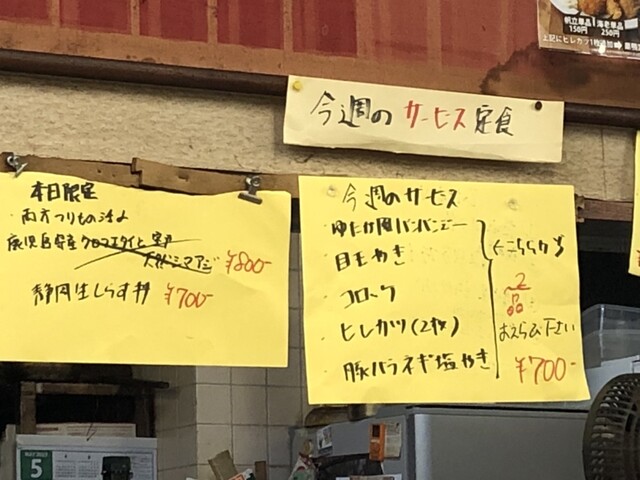 帆立単品 海老単品
150円 250円
今週のサービス定食
本日限定
静岡生しらす丼 ¥700-
鹿児島県産クロマエダイと
天然シマアジ ¥800-
今週のサービス
ゆたか風バンバンジー
目玉やき
コロッケ
ヒレカツ(2枚)
豚バラネギ塩やき
←こちらから
2
品
おえらび下さい
¥700-
5